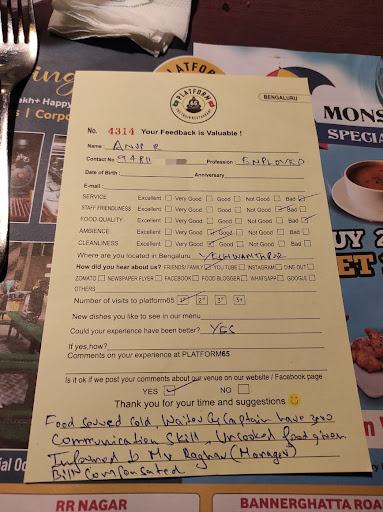 PLATFORM
BENGALURU
No. 4314 Your Feedback is Valuable !
Name ANUP R
Contact No 94811 Profession : EMPLOYED
Date of Birth : Anniversary
E-mail :
SERVICE Excellent Very Good Good Not Good Bad
STAFF FRIENDLINESS Excellent Very Good Good Not Good Bad
FOOD QUALITY Excellent Very Good Good Not Good Bad
AMBIENCE Excellent Very Good Good Not Good Bad
CLEANLINESS Excellent Very Good Good Not Good Bad
Where are you located in Bengaluru YESHWANTHPUR
How did you hear about us? FRIENDS/ FAMILY YOU TUBE INSTAGRAM DINE OUT
ZOMATO NEWSPAPER FLYER FACEBOOK FOOD BLOGGER WHATSAPP GOOGLE
OTHERS
Number of visits to platform65 1st 2nd 3rd 3+
New dishes you like to see in our menu
Could your experience have been better? YES
If yes,how?
Comments on your experience at PLATFORM65
Is it ok if we post your comments about our venue on our website / Facebook page
YES NO
Thank you for your time and suggestions
Food served cold, Waiter & Captain have zero
Communication Skill, Uncooked food given
Informed to Mr Raghav (Manager)
Bill Compensated
PLATFORM
MONS
SPECIA
RR NAGAR
BANNERGHATTA ROA